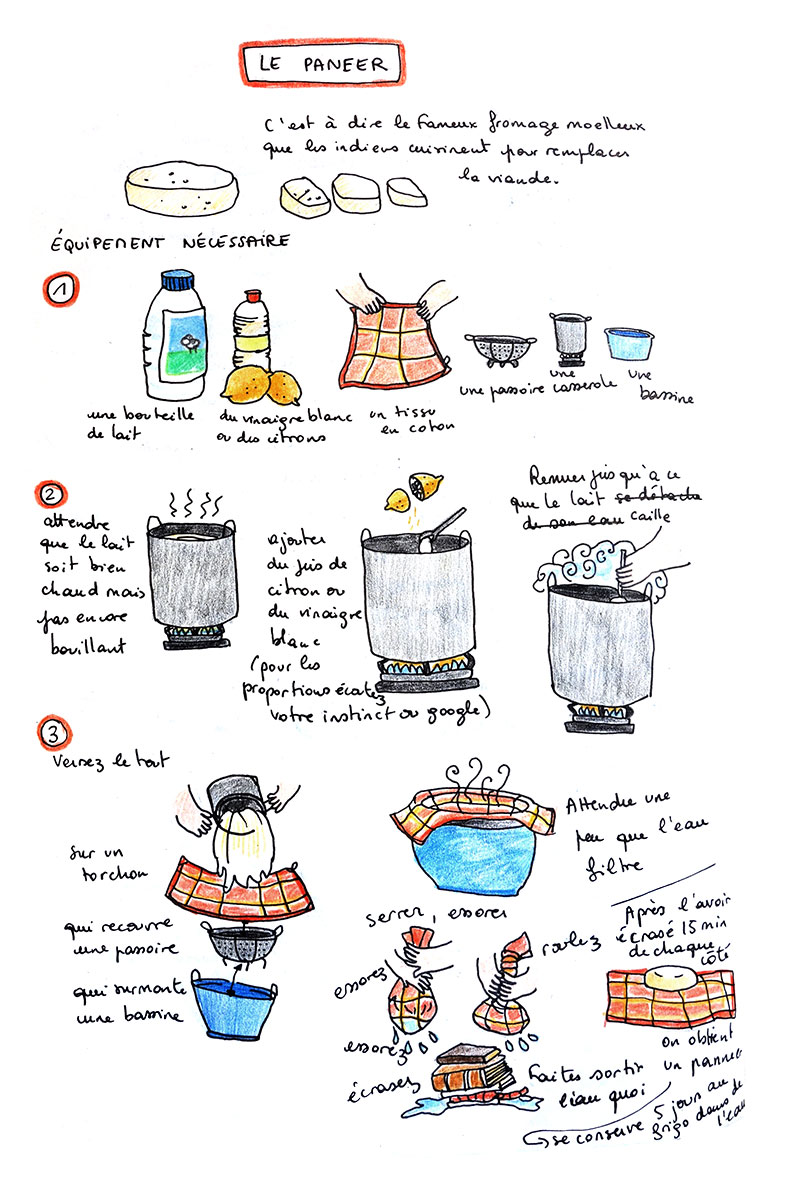 LE PANEER
C'est à dire le fameux fromage moelleux
que les indiens cuisinent pour remplacer
la viande.
ÉQUIPEMENT NÉCESSAIRE
1
une bouteille
de lait
du vinaigre blanc
ou des citrons
un tissu
en coton
une passoire
une
casserole
une
bassine
2
attendre
que le lait
soit bien
chaud mais
pas encore
bouillant
ajouter
du jus de
citron ou
du vinaigre
blanc
(pour les
proportions écoutez
votre instinct ou google)
Remuer jusqu'à ce
que le lait se détache
de son eau caille
3
Versez le tout
sur un
torchon
qui recouvre
une passoire
qui surmonte
une bassine
Attendre une
peu que l'eau
filtre
serrer, essorer
essorez
roulez
essorez
écrasez
Faites sortir
l'eau quoi
Après l'avoir
écrasé 15 min
de chaque
côté
on obtient
un panneer
se conserve 5 jours au
frigo dans de
l'eau